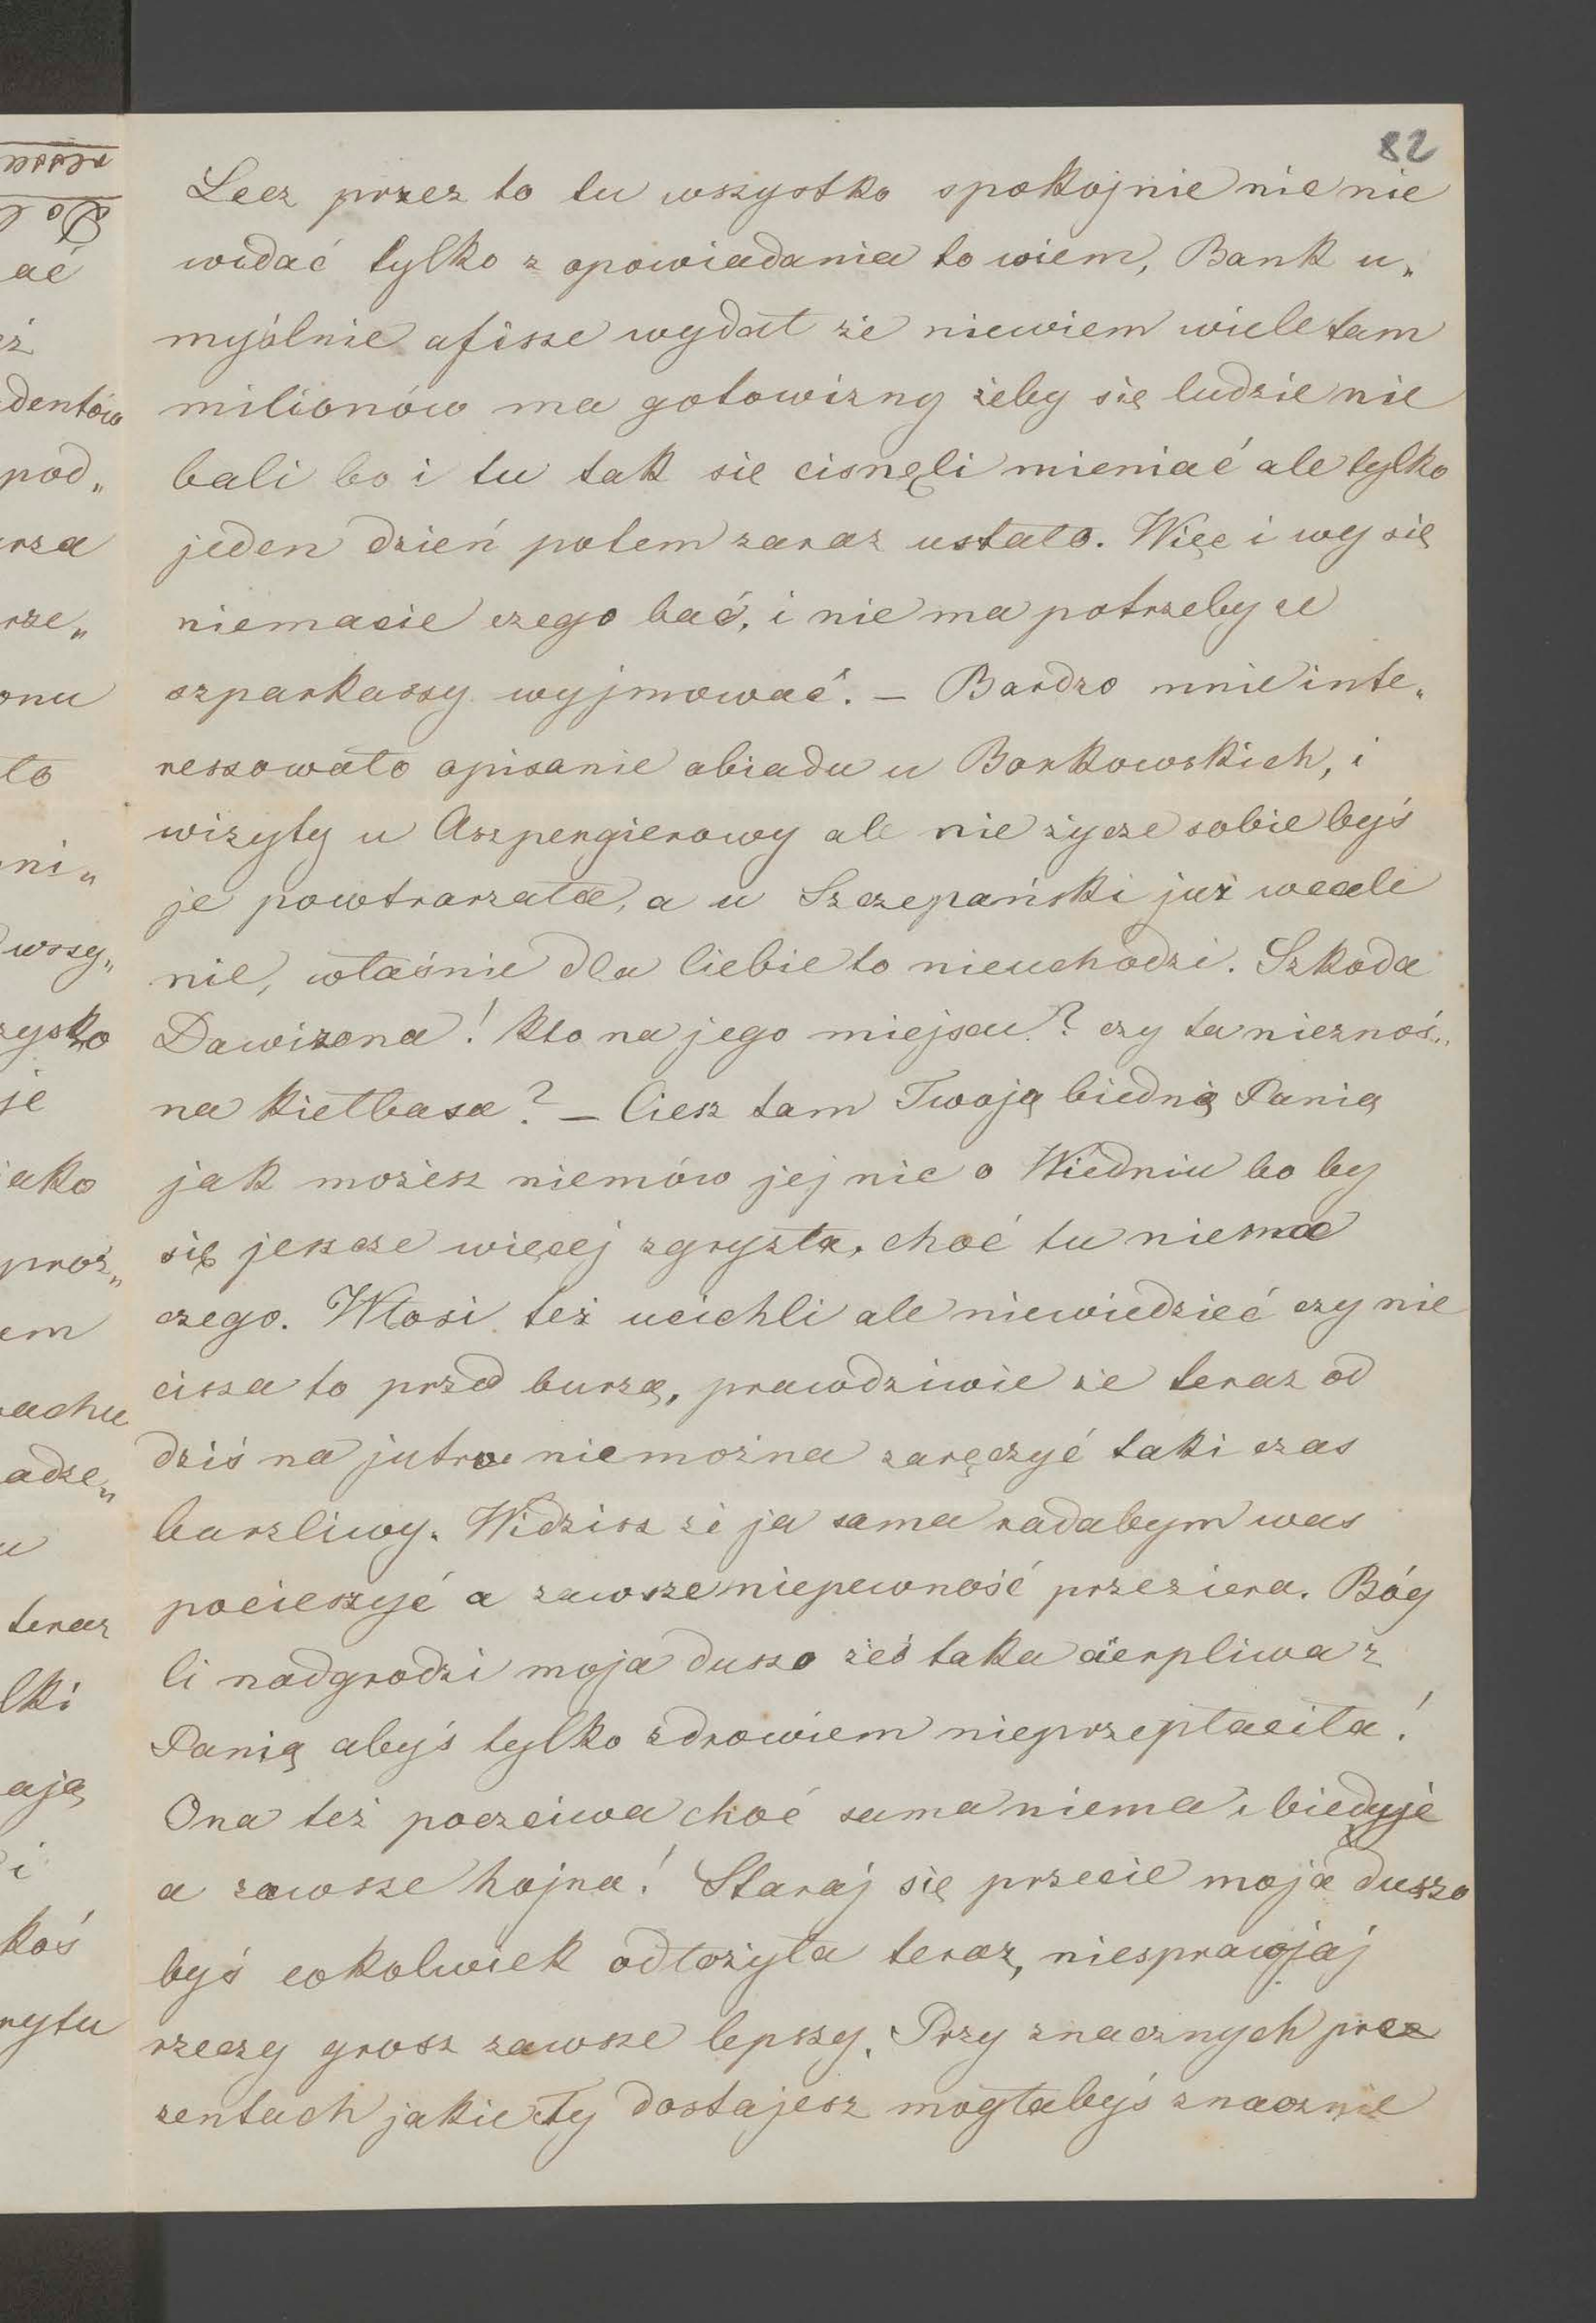 82
Lecz przez to tu wszystko spokojnie nic nie
widać tylko z opowiadania to wiem, Bank u„
myślnie afisze wydał że niewiem wiele tam
milionów ma gotowizny żeby się ludzie nie
bali bo i tu tak się cisnęli mieniać ale tylko
jeden dzień potem zaraz ustało. Więc i wy się
niemacie czego bać, i nie ma potrzeby ze
szparkassy wyjmować. — Bardzo mnie inte„
ressowało opisanie obiadu u Borkowskich, i
wizyty u Aszpergierowy ale nie życze sobie byś
je powtrarzała, a u Szczepański już wcale
nie, właśnie dla Ciebie to nieuchodzi. Szkoda
Dawizona! kto na jego miejscu? czy ta nieznoś„
na kiełbasa? — Ciesz tam Twoją biedną Panią
jak możesz niemów jej nic o Wiedniu bo by
się jeszcze więcej zgryzła, choć tu niema
czego. Włosi też ucichli ale niewiedzieć czy nie
cisza to przed burzą, prawdziwie że teraz od
dziś na jutro niemożna zaręczyć taki czas
burzliwy. Widzisz że ja sama radabym was
pocieszyć a zawsze niepewność przeziera. Bóg
Ci nadgrodzi moja duszo żeś taka cierpliwa z
Panią abyś tylko zdrowiem nieprzepłaciła!
Ona też poczciwa choć sama niema i bieduje
a zawsze hojna! Staraj się przecie moja duszo
byś cokolwiek odłożyła teraz, niesprawjaj
rzeczy grosz zawsze lepszy. Przy znacznych pre
zentach jakie Ty dostajesz mogłabyś znacznie
ać
dentów
pod„
rza
rze„
onu
ło
ni„
wszy„
zysko
je
jako
proś„
em
achu
adze„
u
teraz
lki
ają
i
koś
rytu